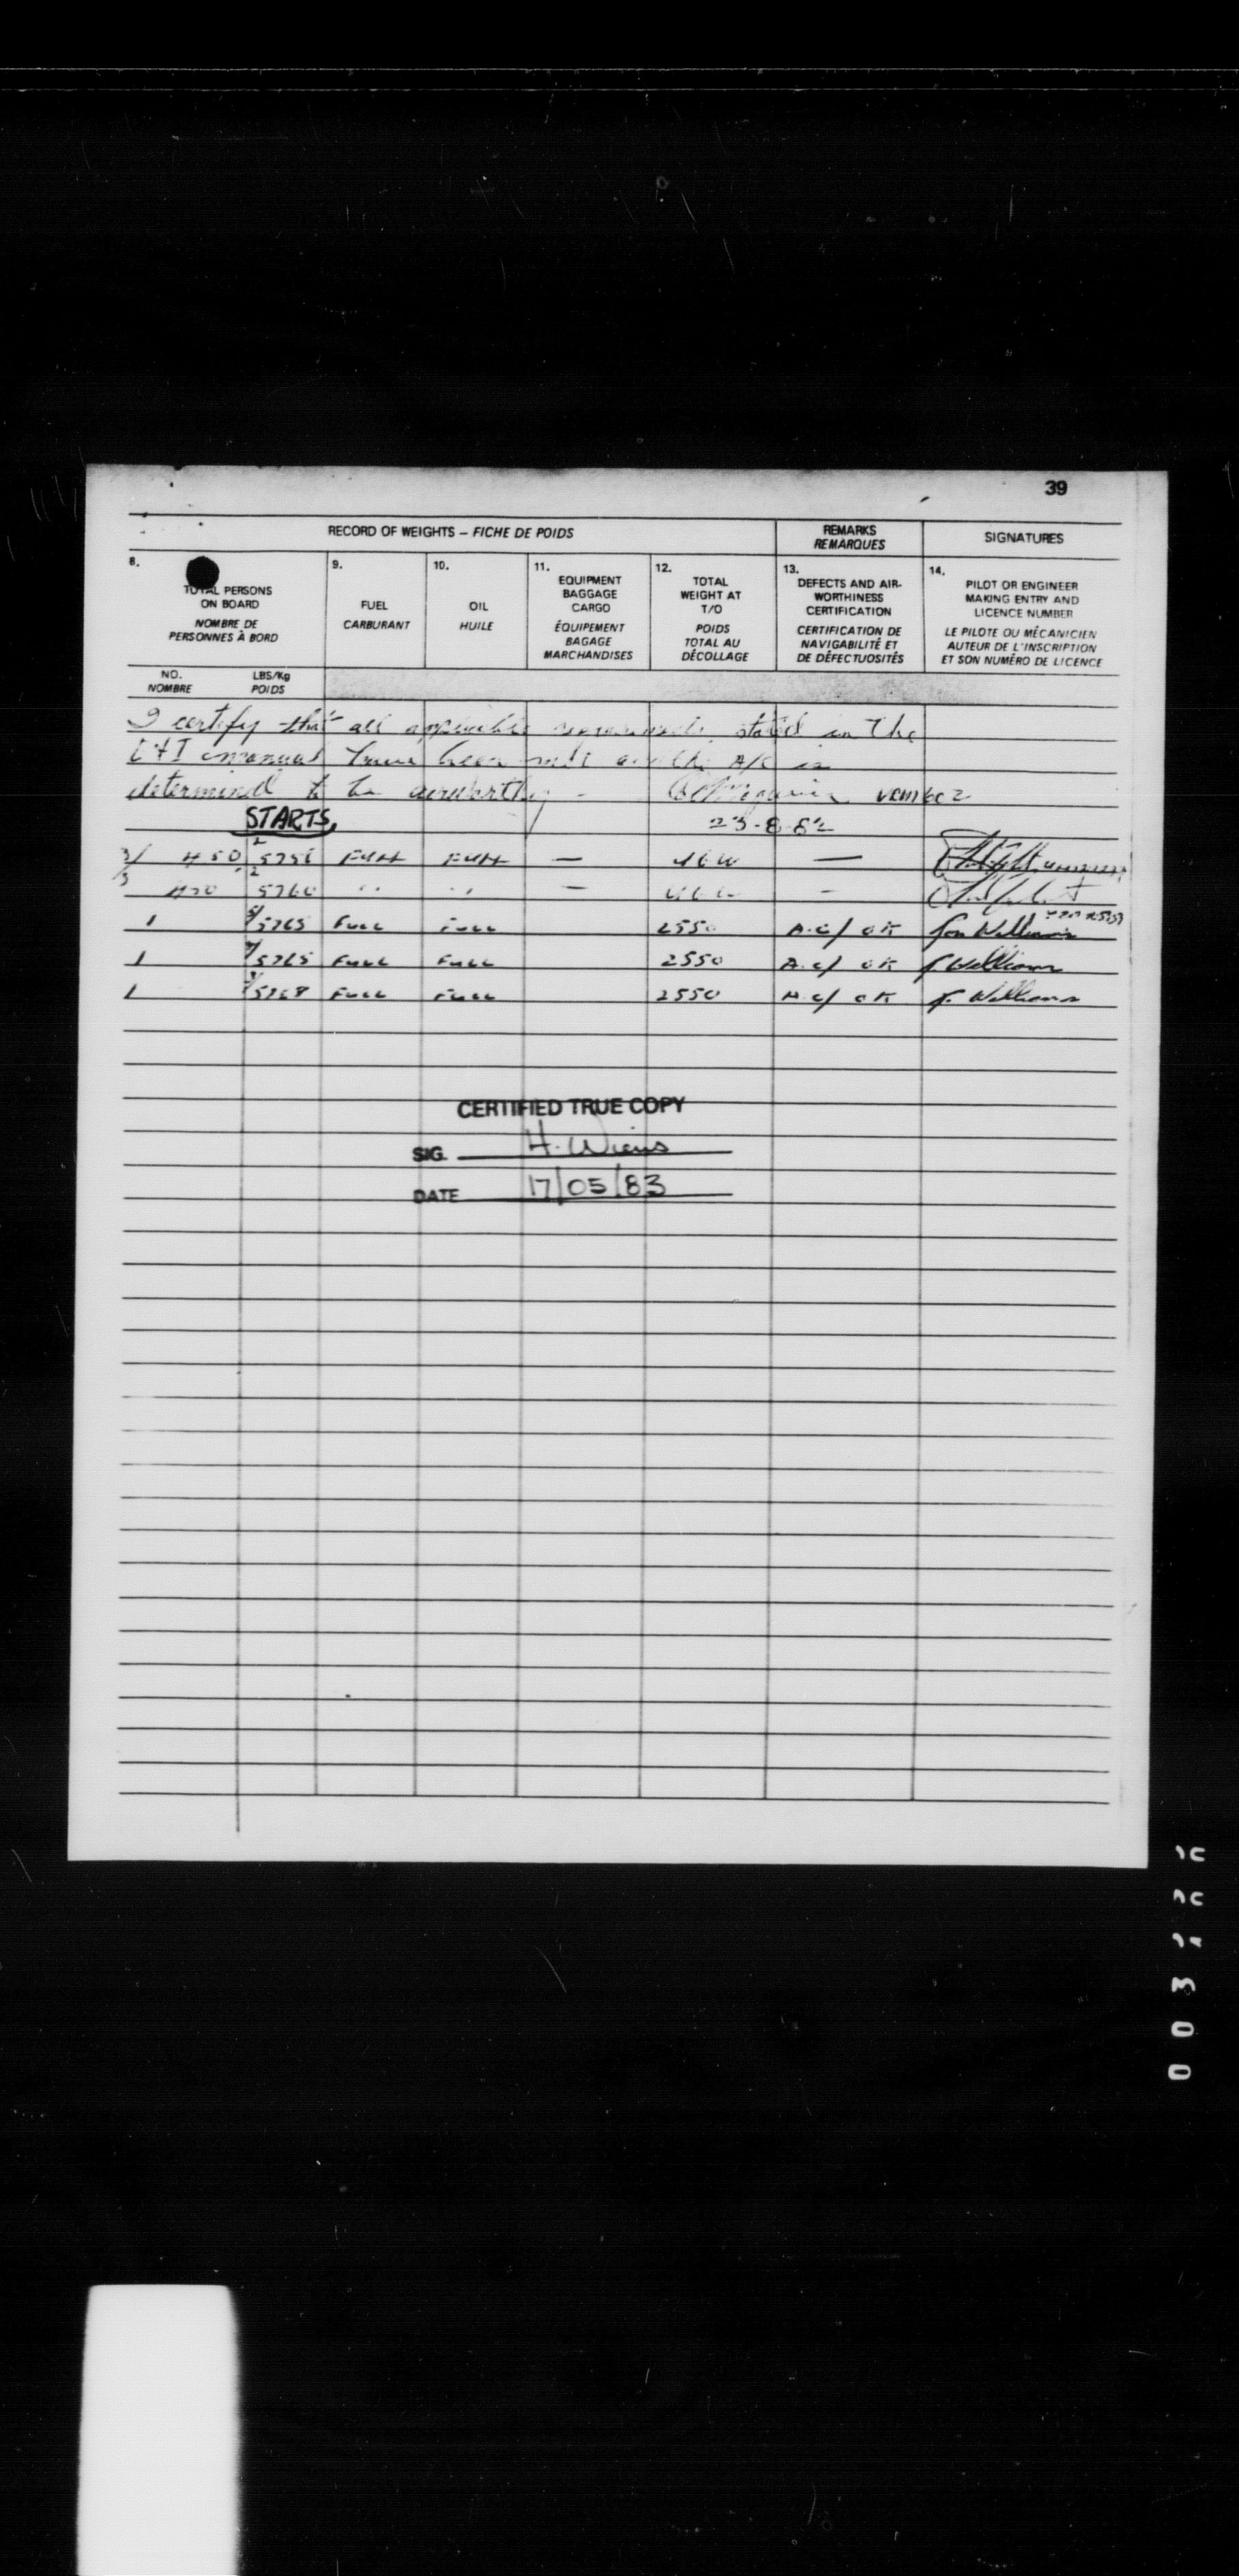 39
RECORD OF WEIGHTS – FICHE DE POIDS
REMARKS
REMARQUES
SIGNATURES
8.
TOTAL PERSONS
ON BOARD
NOMBRE DE
PERSONNES À BORD
9.
FUEL
CARBURANT
10.
OIL
HUILE
11.
EQUIPMENT
BAGGAGE
CARGO
ÉQUIPEMENT
BAGAGE
MARCHANDISES
12.
TOTAL
WEIGHT AT
T/O
POIDS
TOTAL AU
DÉCOLLAGE
13.
DEFECTS AND AIR-
WORTHINESS
CERTIFICATION
CERTIFICATION DE
NAVIGABILITÉ ET
DE DÉFECTUOSITÉS
14.
PILOT OR ENGINEER
MAKING ENTRY AND
LICENCE NUMBER
LE PILOTE OU MÉCANICIEN
AUTEUR DE L'INSCRIPTION
ET SON NUMÉRO DE LICENCE
NO.
NOMBRE
LBS/Kg
POIDS
I certify that all applicable requirements stated in the
E & I manual have been met and the A/C is
determined to be airworthy -
STARTS 23-8-82
450 5756 FULL FULL —  —
5760 " " — -
1 5765 Full Full 2550 A.c/ OK Williams
1 5765 Full Full 2550 A.c/ OK Williams
1 5768 Full Full 2550 A.c/ OK Williams
CERTIFIED TRUE COPY
SIG. H. Wiens
DATE 17/05/83